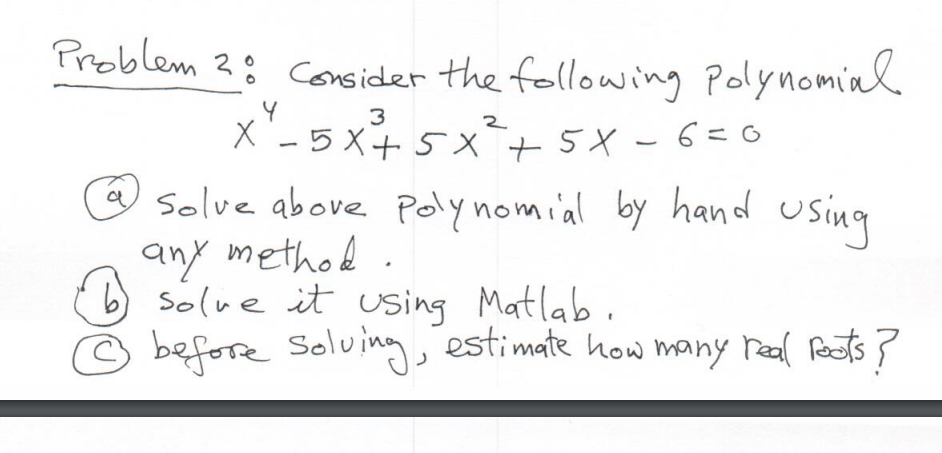 Problem 2: Consider the following Polynomial
x⁴ - 5x³ + 5x² + 5x - 6 = 0
(a) Solve above Polynomial by hand using
any method.
(b) Solve it using Matlab.
(c) before Solving, estimate how many real roots?